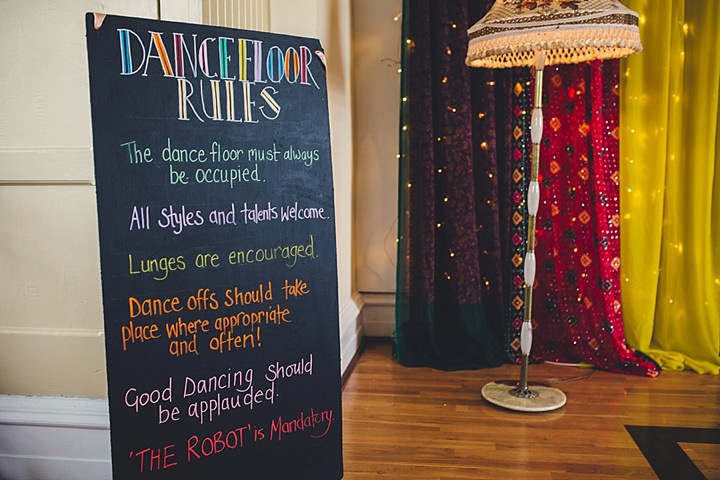 DANCEFLOOR
RULES
The dance floor must always
be occupied.
All styles and talents welcome.
Lunges are encouraged.
Dance offs should take
place where appropriate
and often!
Good Dancing should
be applauded.
'THE ROBOT' is Mandatory.